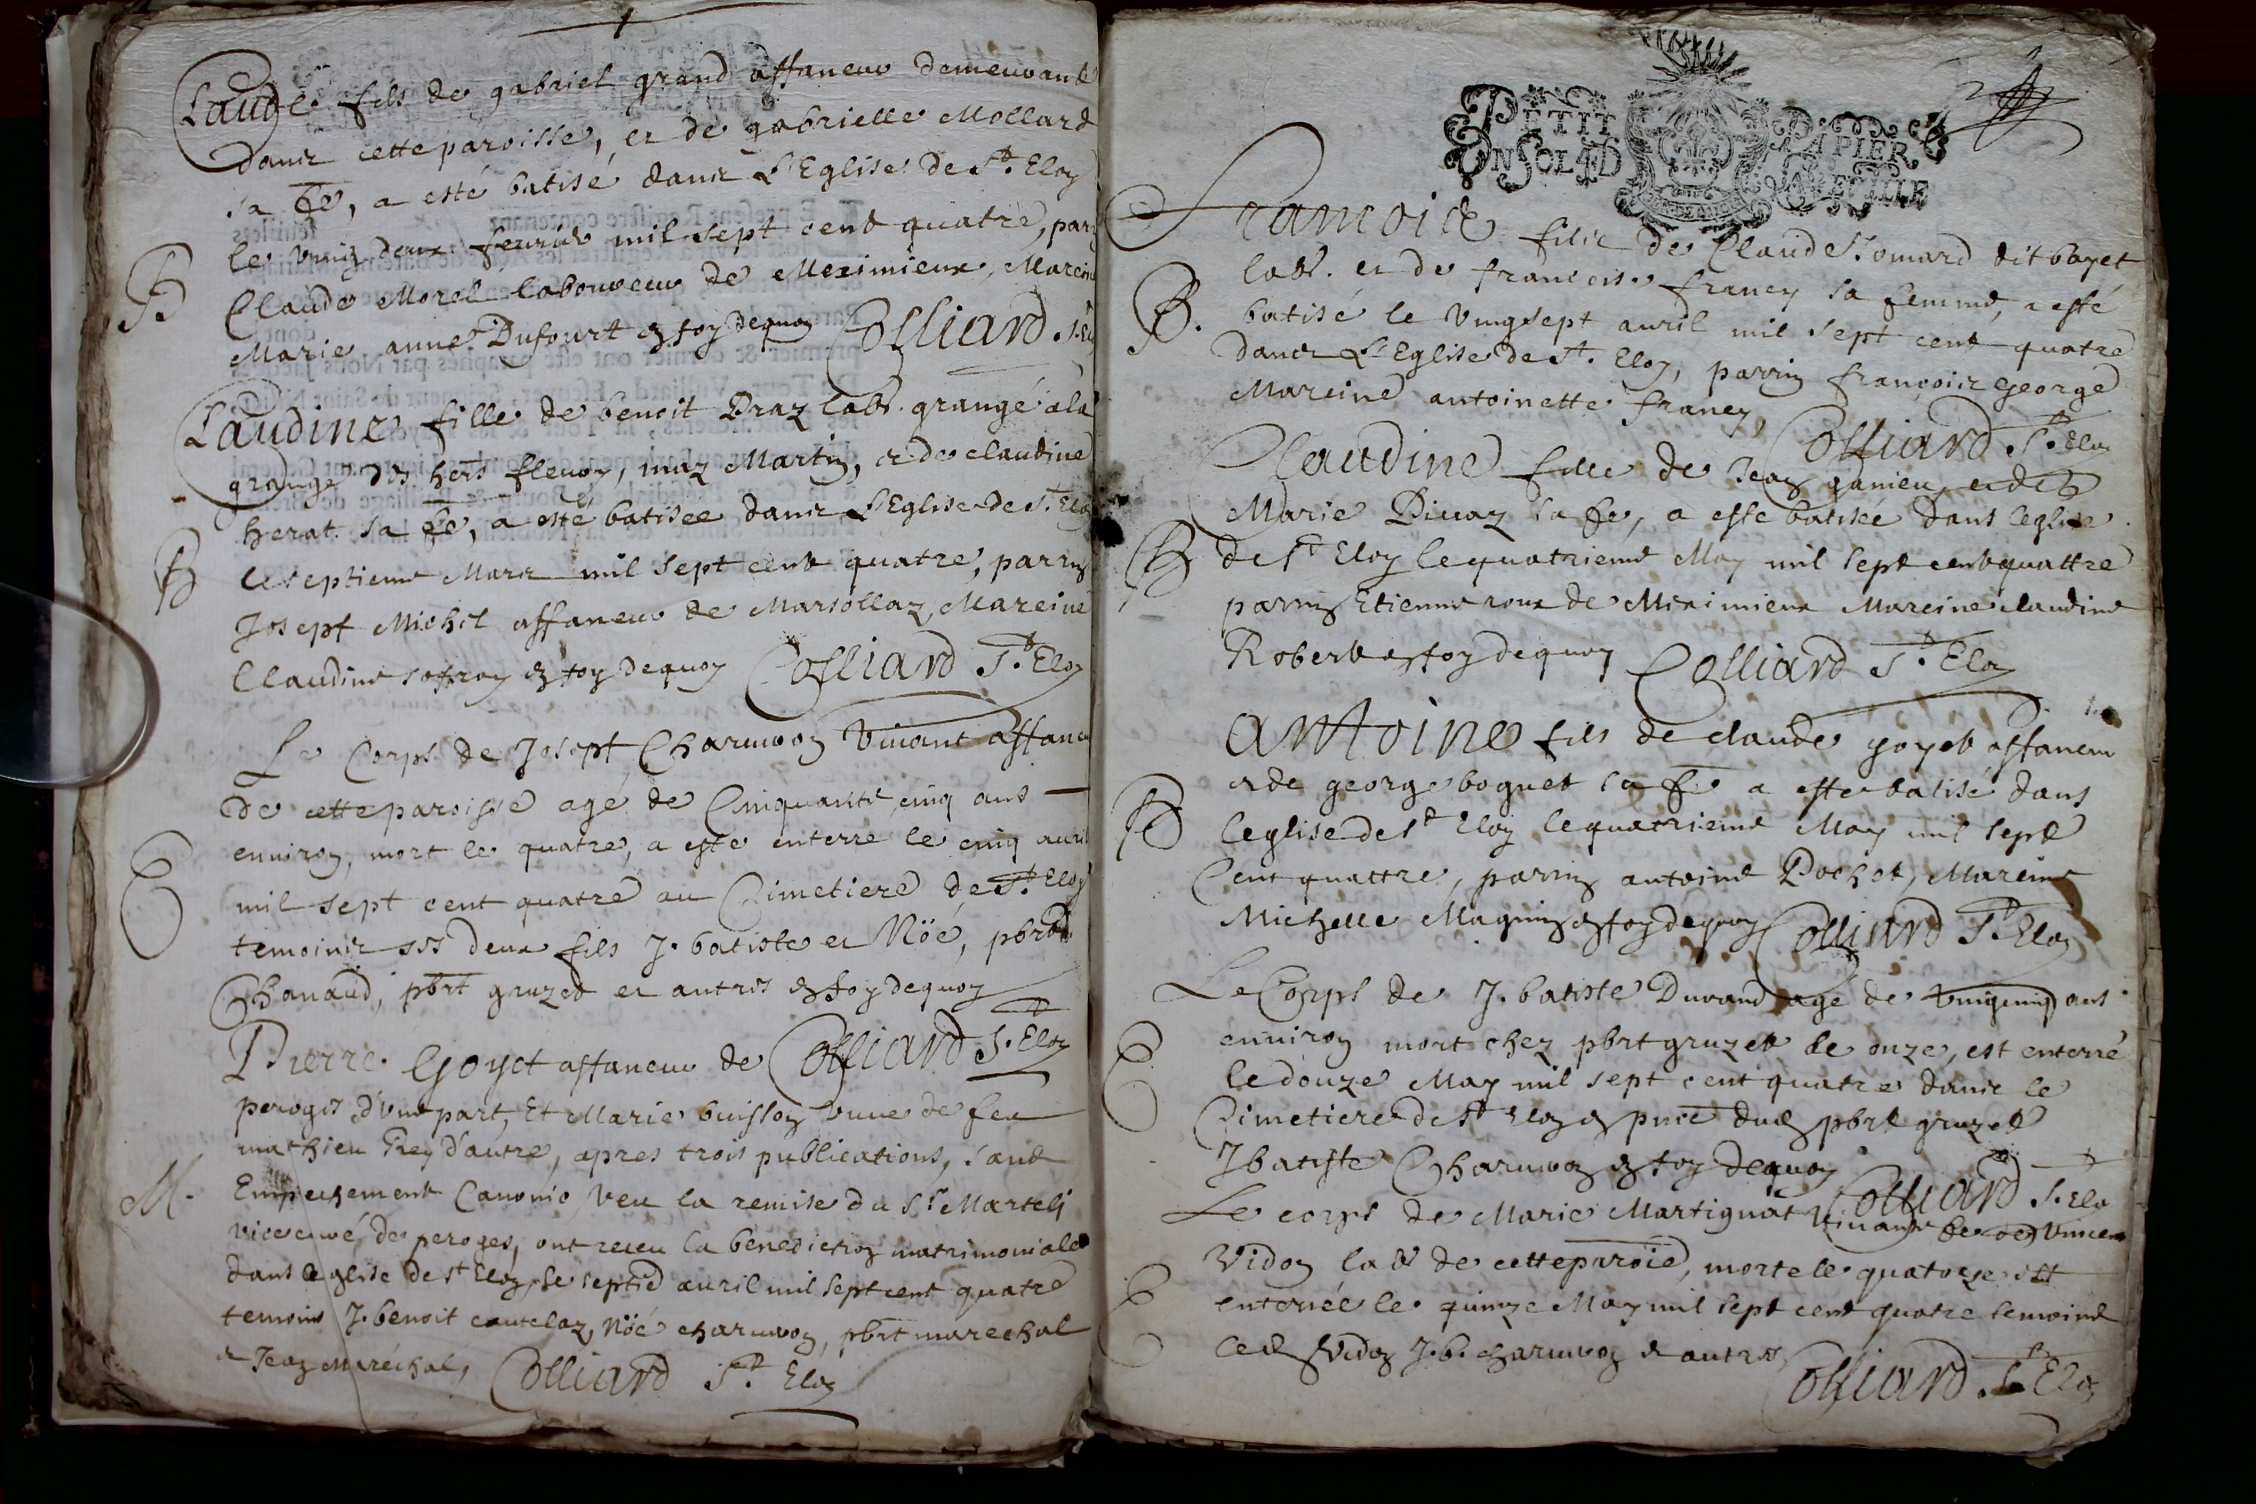 Claude fils de gabriel grand affaneur demeurant
dans cette paroisse, et de gabrielle Mollard
sa fe, a esté batisé dans L'Eglise de St. Eloy
le vingt deux feurier mil sept cent quatre, parin
B
Claude Morel laboureur de Meximieux, Mareine
Marie anne Dufourt en foy dequoy Colliard St. Eloy
Claudine fille de benoit Praz labr. grangé a la
grange des hers fleury, maz Martin, et de claudine
herat sa fe, a esté batisee dans L'Eglise de St. Eloy
B
le septieme Mars mil sept cent quatre, parrin
Josept Michel affaneur de Marsollaz, Mareine
Claudine en foy dequoy Colliard St. Eloy
Le Corps de Josept Charuvon Vivant affaneur
de cette paroisse agé de Cinquante cinq ans
environ, mort le quatre, a esté enterre le cinq avril
E
mil sept cent quatre au Cimetiere de St. Eloy
temoins ses deux fils J. batiste et Nöé, pbrt
Chanaud, pbrt gruzet et autres en foy dequoy
Colliard St. Eloy
Pierre Goyet affaneur de
peroges d'une part, Et Marie buisson vuve de feu
mathieu Frey d'autre, apres trois publications, sans
M.
Empechement Canonic, veu la remise du Sr Martelj
vicecuré de peroges, ont receu la benediction matrimoniale
dans leglise de St Eloy le septie avril mil sept cent quatre
temoins J. benoit cautelaz, Nöé charuvon, pbrt marechal
et Jean Maréchal, Colliard St. Eloy
PETIT PAPIER
ON SOL 4 D LA FEUILLE
2
Francois filz de Claude dit bayet
labr. et de francoise francy sa femme, a esté
B.
batisé le vingsept avril mil sept cent quatre
dans L'Eglise de St. Eloy, parrin françois George
Mareine antoinette francy,
Colliard St. Eloy
Claudine fille de Jean ganieu, et de
Marie Divaz sa fe, a esté batisée dans leglise
B
de St Eloy le quatrieme May mil sept cent quattre
parrin Etienne roux de Meximieux Mareine claudine
Robert en foy dequoy Colliard St. Eloy
antoine fils de claude goyet affaneur
et de george boguet sa fe a esté batisé dans
B
leglise de St Eloy le quatrieme May mil sept
Cent quattre, parrin antoine Pochet, Mareine
Michelle Magnin en foy dequoy Colliard St. Eloy
Le Corps de J. batiste Durand agé de vingcinq ans
E
environ mort chez pbrt gruzet le onze, est enterré
le douze May mil sept cent quatre dans le
Cimetiere de St Eloy en pnce dud pbrt gruzet
J batiste Charuvon en foy dequoy
Colliard St. Eloy
Le corps de Marie Martignat vivant fe de Vincent
Vidon labr de cette paroie, morte le quatorze est
E
enterrée le quinze May mil sept cent quatre temoins
led Vidon J. b. charuvon et autres,
Colliard St. Eloy